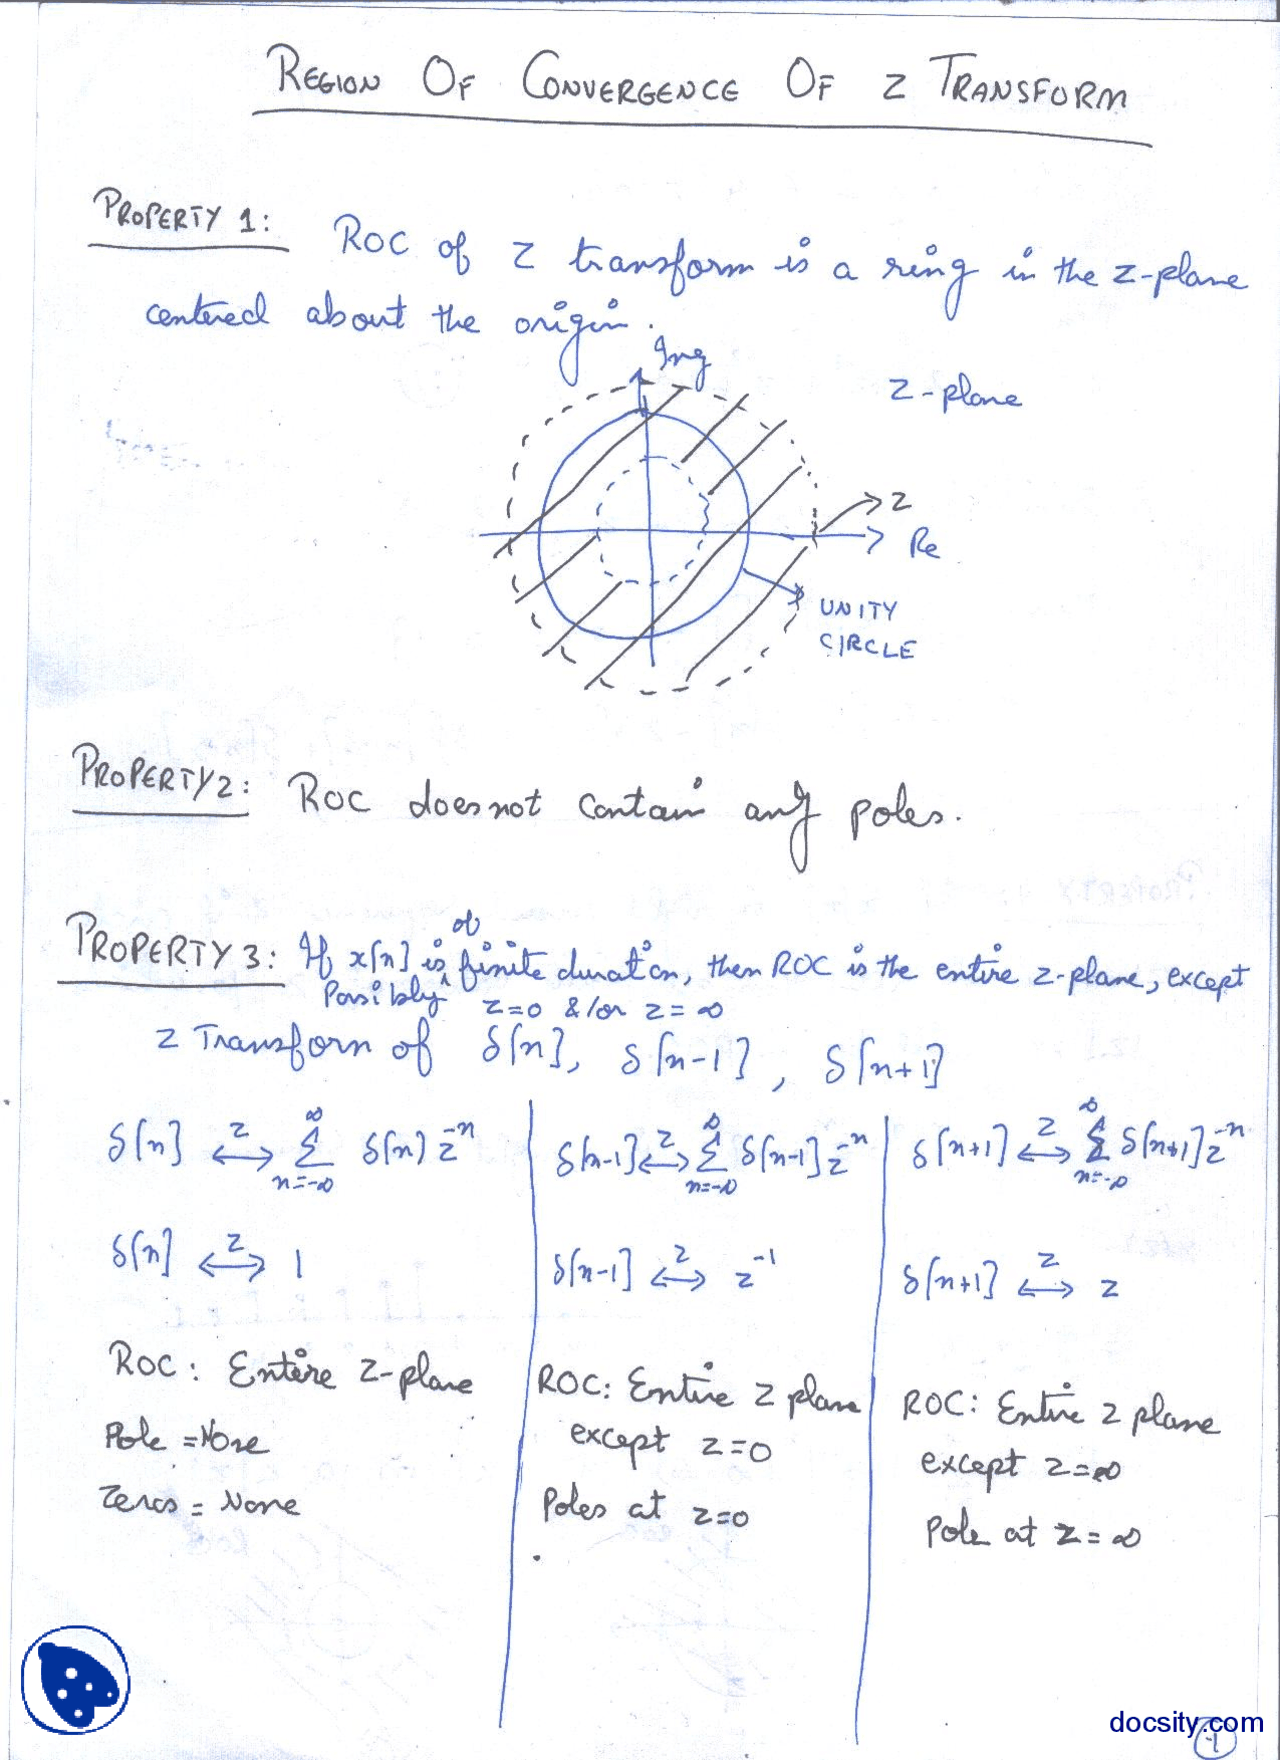 REGION OF CONVERGENCE OF Z TRANSFORM
PROPERTY 1: ROC of Z transform is a ring in the z-plane
centered about the origin.
Img
Z-plane
Z
Re
UNITY
CIRCLE
PROPERTY 2: ROC does not contain any poles.
of
PROPERTY 3: If x[n] is finite duration, then ROC is the entire z-plane, except
Possibly z=0 &/or z=∞
Z Transform of δ[n], δ[n-1], δ[n+1]
δ[n] ⟷ᶻ ∑_{n=-∞}^{∞} δ[n] z^{-n}
δ[n] ⟷ᶻ 1
ROC: Entire Z-plane
Pole = None
Zeros = None
δ[n-1] ⟷ᶻ ∑_{n=-∞}^{∞} δ[n-1] z^{-n}
δ[n-1] ⟷ᶻ z^{-1}
ROC: Entire Z plane
except z=0
Poles at z=0
δ[n+1] ⟷ᶻ ∑_{n=-∞}^{∞} δ[n+1] z^{-n}
δ[n+1] ⟷ᶻ z
ROC: Entire Z plane
except z=∞
Pole at z=∞
docsity.com
1